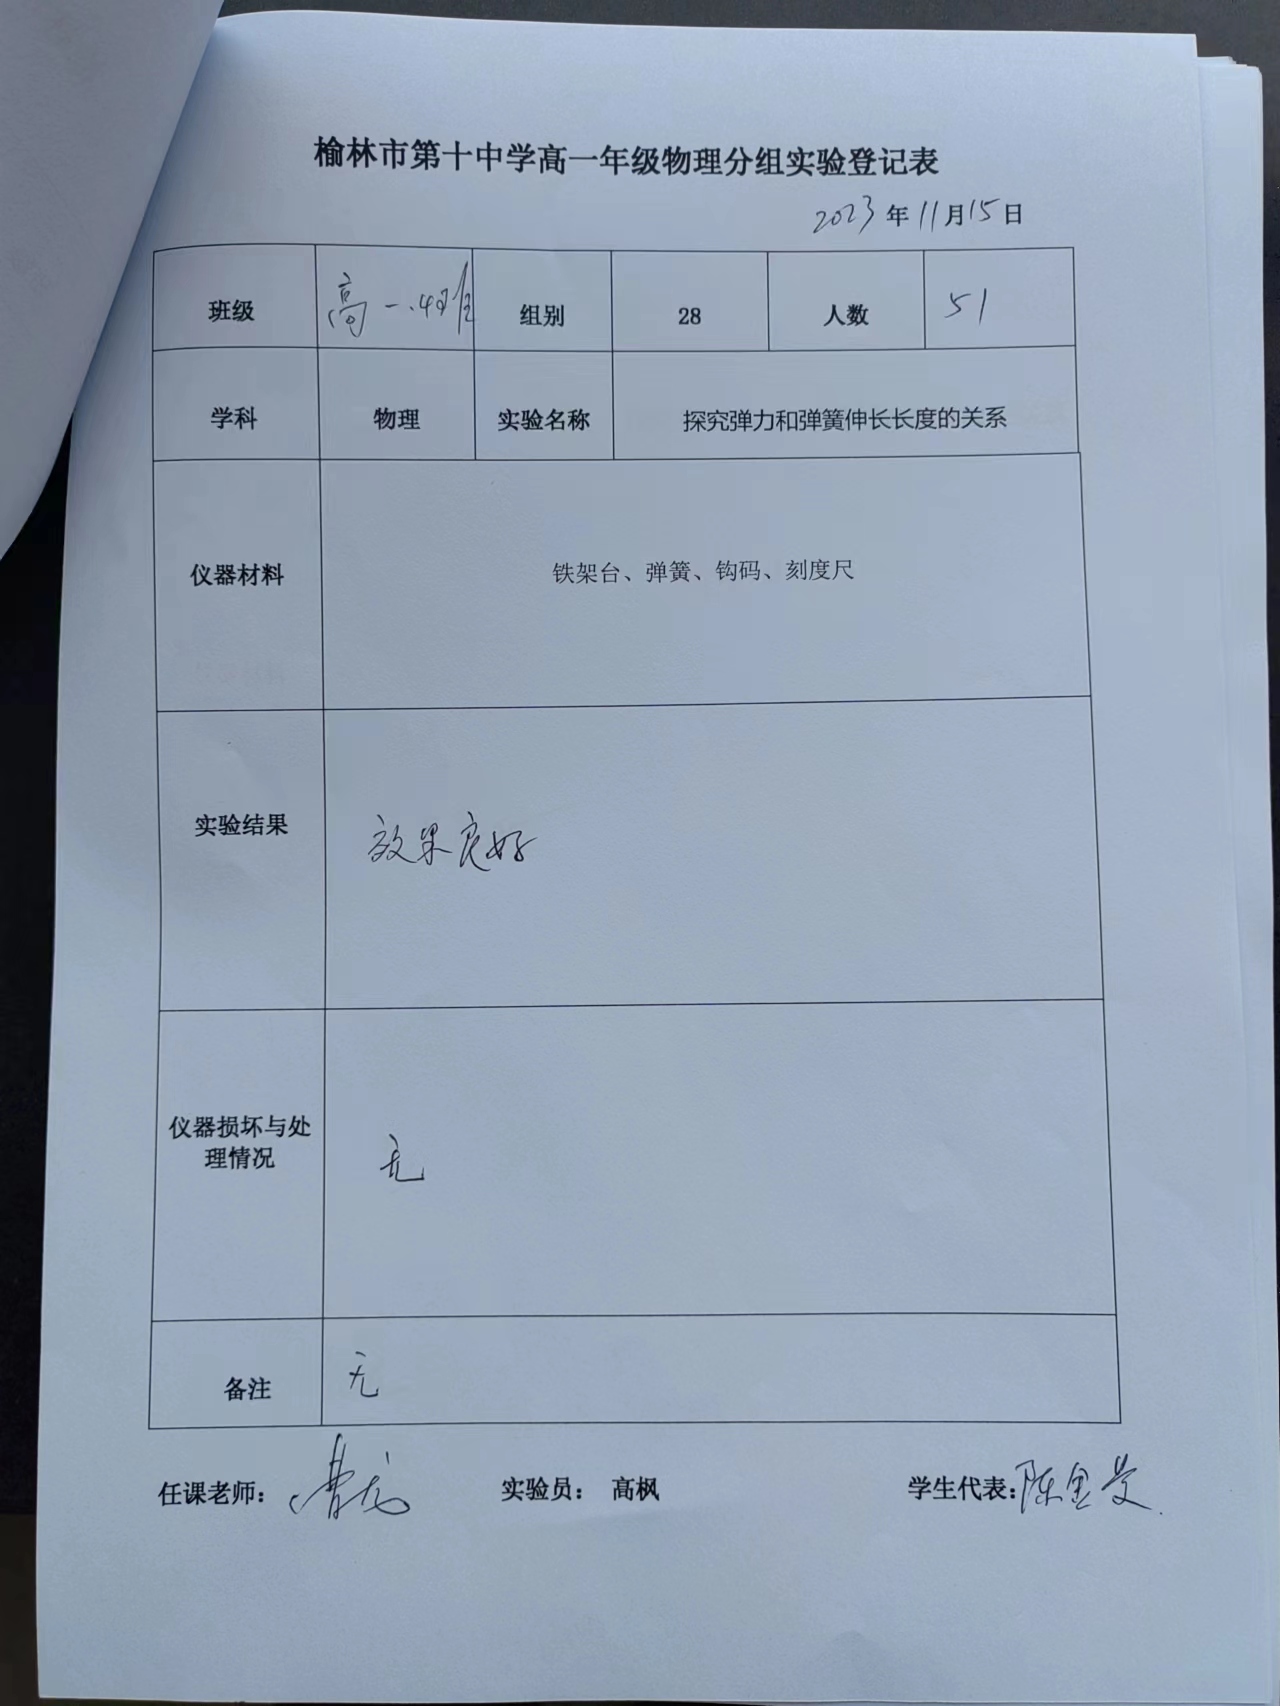 榆林市第十中学高一年级物理分组实验登记表
2023年11月15日
班级 高一.4班 组别 28 人数 51
学科 物理 实验名称 探究弹力和弹簧伸长长度的关系
仪器材料 铁架台、弹簧、钩码、刻度尺
实验结果 效果良好
仪器损坏与处
理情况
无
备注 无
任课老师： 曹龙 实验员： 高枫 学生代表: 陈